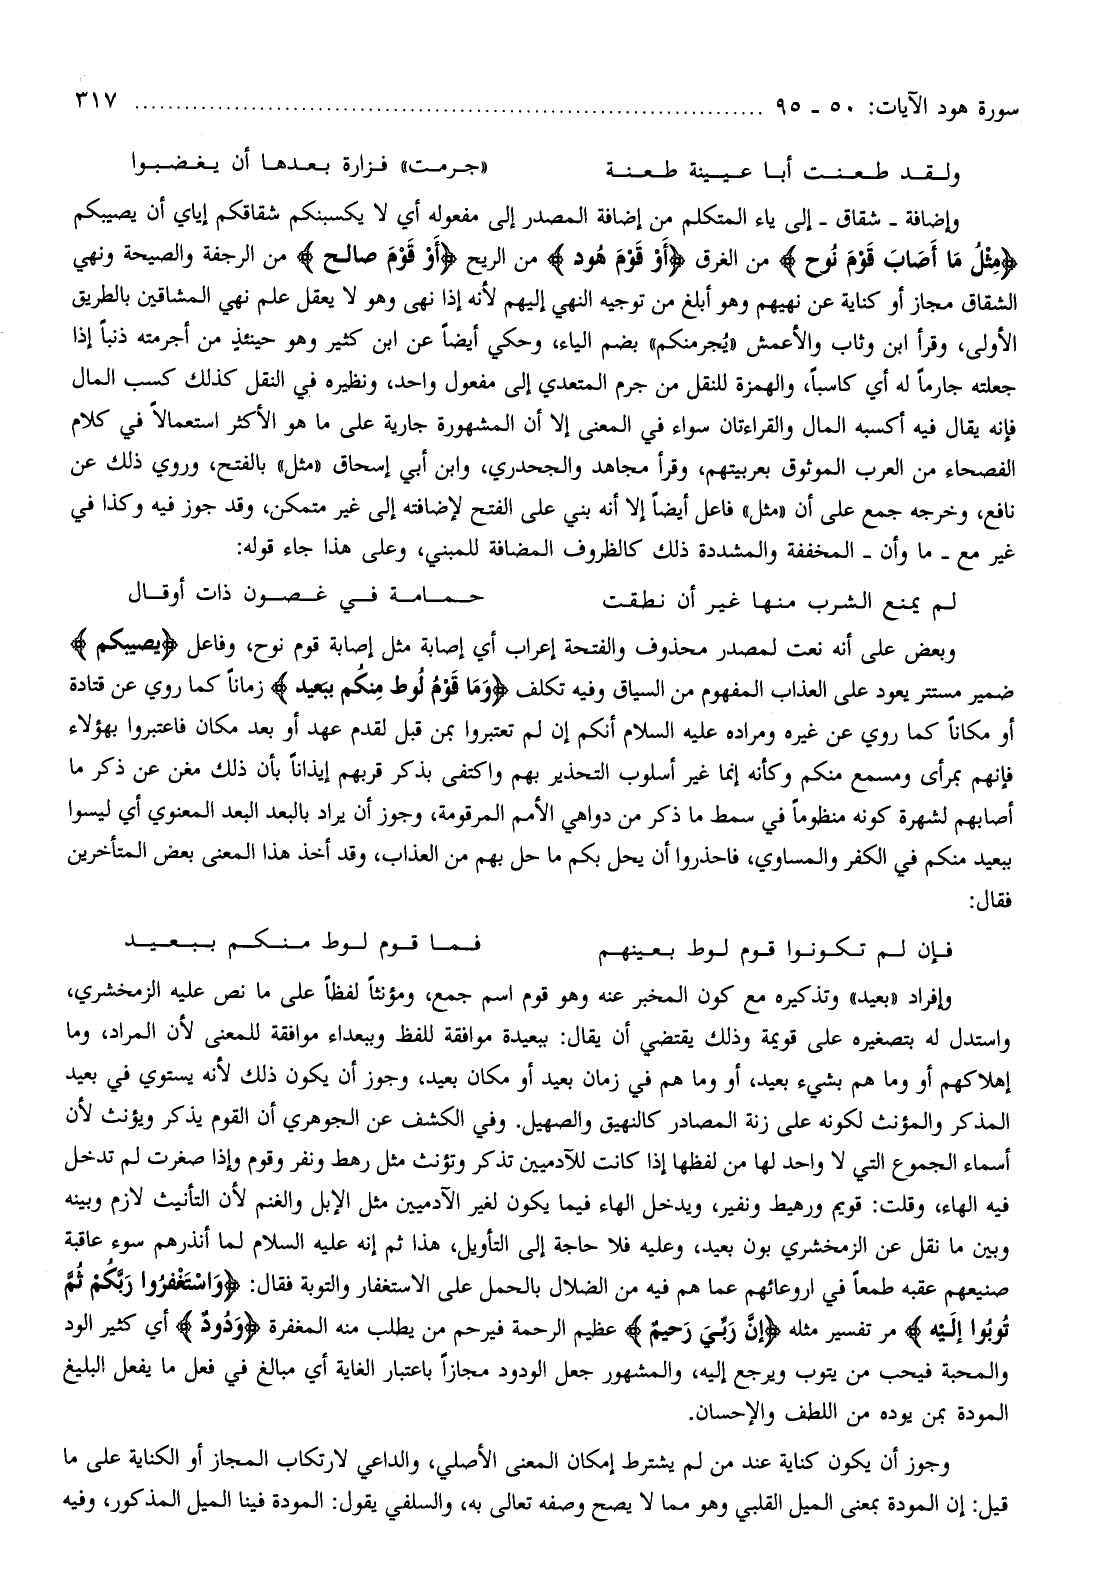 سورة هود الآيات: ٥٠ ـ ٩٥ ........................................ ٣١٧
ولـقـد طـعـنـت أبـا عـيـيـنة طـعـنـة «جـرمـت» فـزارة بـعـدهـا أن يـغـضـبـوا
وإضافة ـ شقاق ـ إلى ياء المتكلم من إضافة المصدر إلى مفعوله أي لا يكسبنكم شقاقكم إياي أن يصيبكم
﴿مِثْلُ مَا أَصَابَ قَوْمَ نُوح﴾ من الغرق ﴿أَوْ قَوْمَ هُود﴾ من الريح ﴿أَوْ قَوْمَ صالح﴾ من الرجفة والصيحة ونهي
الشقاق مجاز أو كناية عن نهيهم وهو أبلغ من توجيه النهي إليهم لأنه إذا نهى وهو لا يعقل علم نهي المشاقين بالطريق
الأولى، وقرأ ابن وثاب والأعمش «يُجرمنكم» بضم الياء، وحكي أيضاً عن ابن كثير وهو حينئذٍ من أجرمته ذنباً إذا
جعلته جارماً له أي كاسباً، والهمزة للنقل من جرم المتعدي إلى مفعول واحد، ونظيره في النقل كذلك كسب المال
فإنه يقال فيه أكسبه المال والقراءتان سواء في المعنى إلا أن المشهورة جارية على ما هو الأكثر استعمالاً في كلام
الفصحاء من العرب الموثوق بعربيتهم، وقرأ مجاهد والجحدري، وابن أبي إسحاق «مثل» بالفتح، وروي ذلك عن
نافع، وخرجه جمع على أن «مثل» فاعل أيضاً إلا أنه بني على الفتح لإضافته إلى غير متمكن، وقد جوز فيه وكذا في
غير مع ـ ما وأن ـ المخففة والمشددة ذلك كالظروف المضافة للمبني، وعلى هذا جاء قوله:
لم يمنع الشرب منها غير أن نطقت حـمـامـة فـي غـصـون ذات أوقـال
وبعض على أنه نعت لمصدر محذوف والفتحة إعراب أي إصابة مثل إصابة قوم نوح، وفاعل ﴿يصيبكم﴾
ضمير مستتر يعود على العذاب المفهوم من السياق وفيه تكلف ﴿وَمَا قَوْمُ لُوط مِنكُم ببَعيد﴾ زماناً كما روي عن قتادة
أو مكاناً كما روي عن غيره ومراده عليه السلام أنكم إن لم تعتبروا بمن قبل لقدم عهد أو بعد مكان فاعتبروا بهؤلاء
فإنهم بمرأى ومسمع منكم وكأنه إنما غير أسلوب التحذير بهم واكتفى بذكر قربهم إيذاناً بأن ذلك مغن عن ذكر ما
أصابهم لشهرة كونه منظوماً في سمط ما ذكر من دواهي الأمم المرقومة، وجوز أن يراد بالبعد البعد المعنوي أي ليسوا
ببعيد منكم في الكفر والمساوي، فاحذروا أن يحل بكم ما حل بهم من العذاب، وقد أخذ هذا المعنى بعض المتأخرين
فقال:
فـإن لـم تـكـونـوا قوم لـوط بـعـينهم فـمـا قـوم لـوط مـنـكـم بـبـعـيـد
وإفراد «بعيد» وتذكيره مع كون المخبر عنه وهو قوم اسم جمع، ومؤنثاً لفظاً على ما نص عليه الزمخشري،
واستدل له بتصغيره على قويمة وذلك يقتضي أن يقال: ببعيدة موافقة للفظ وببعداء موافقة للمعنى لأن المراد، وما
إهلاكهم أو وما هم بشيء بعيد، أو وما هم في زمان بعيد أو مكان بعيد، وجوز أن يكون ذلك لأنه يستوي في بعيد
المذكر والمؤنث لكونه على زنة المصادر كالنهيق والصهيل. وفي الكشف عن الجوهري أن القوم يذكر ويؤنث لأن
أسماء الجموع التي لا واحد لها من لفظها إذا كانت للآدميين تذكر وتؤنث مثل رهط ونفر وقوم وإذا صغرت لم تدخل
فيه الهاء، وقلت: قويم ورهيط ونفير، ويدخل الهاء فيما يكون لغير الآدميين مثل الإبل والغنم لأن التأنيث لازم وبينه
وبين ما نقل عن الزمخشري بون بعيد، وعليه فلا حاجة إلى التأويل، هذا ثم إنه عليه السلام لما أنذرهم سوء عاقبة
صنيعهم عقبه طمعاً في اروعائهم عما هم فيه من الضلال بالحمل على الاستغفار والتوبة فقال: ﴿وَاسْتَغْفرُوا رَبَّكُمْ ثُمَّ
تُوبُوا إلَيْه﴾ مر تفسير مثله ﴿إنَّ رَبِّيَ رَحيمٌ﴾ عظيم الرحمة فيرحم من يطلب منه المغفرة ﴿وَدُودٌ﴾ أي كثير الود
والمحبة فيحب من يتوب ويرجع إليه، والمشهور جعل الودود مجازاً باعتبار الغاية أي مبالغ في فعل ما يفعل البليغ
المودة بمن يوده من اللطف والإحسان.
وجوز أن يكون كناية عند من لم يشترط إمكان المعنى الأصلي، والداعي لارتكاب المجاز أو الكناية على ما
قيل: إن المودة بمعنى الميل القلبي وهو مما لا يصح وصفه تعالى به، والسلفي يقول: المودة فينا الميل المذكور، وفيه